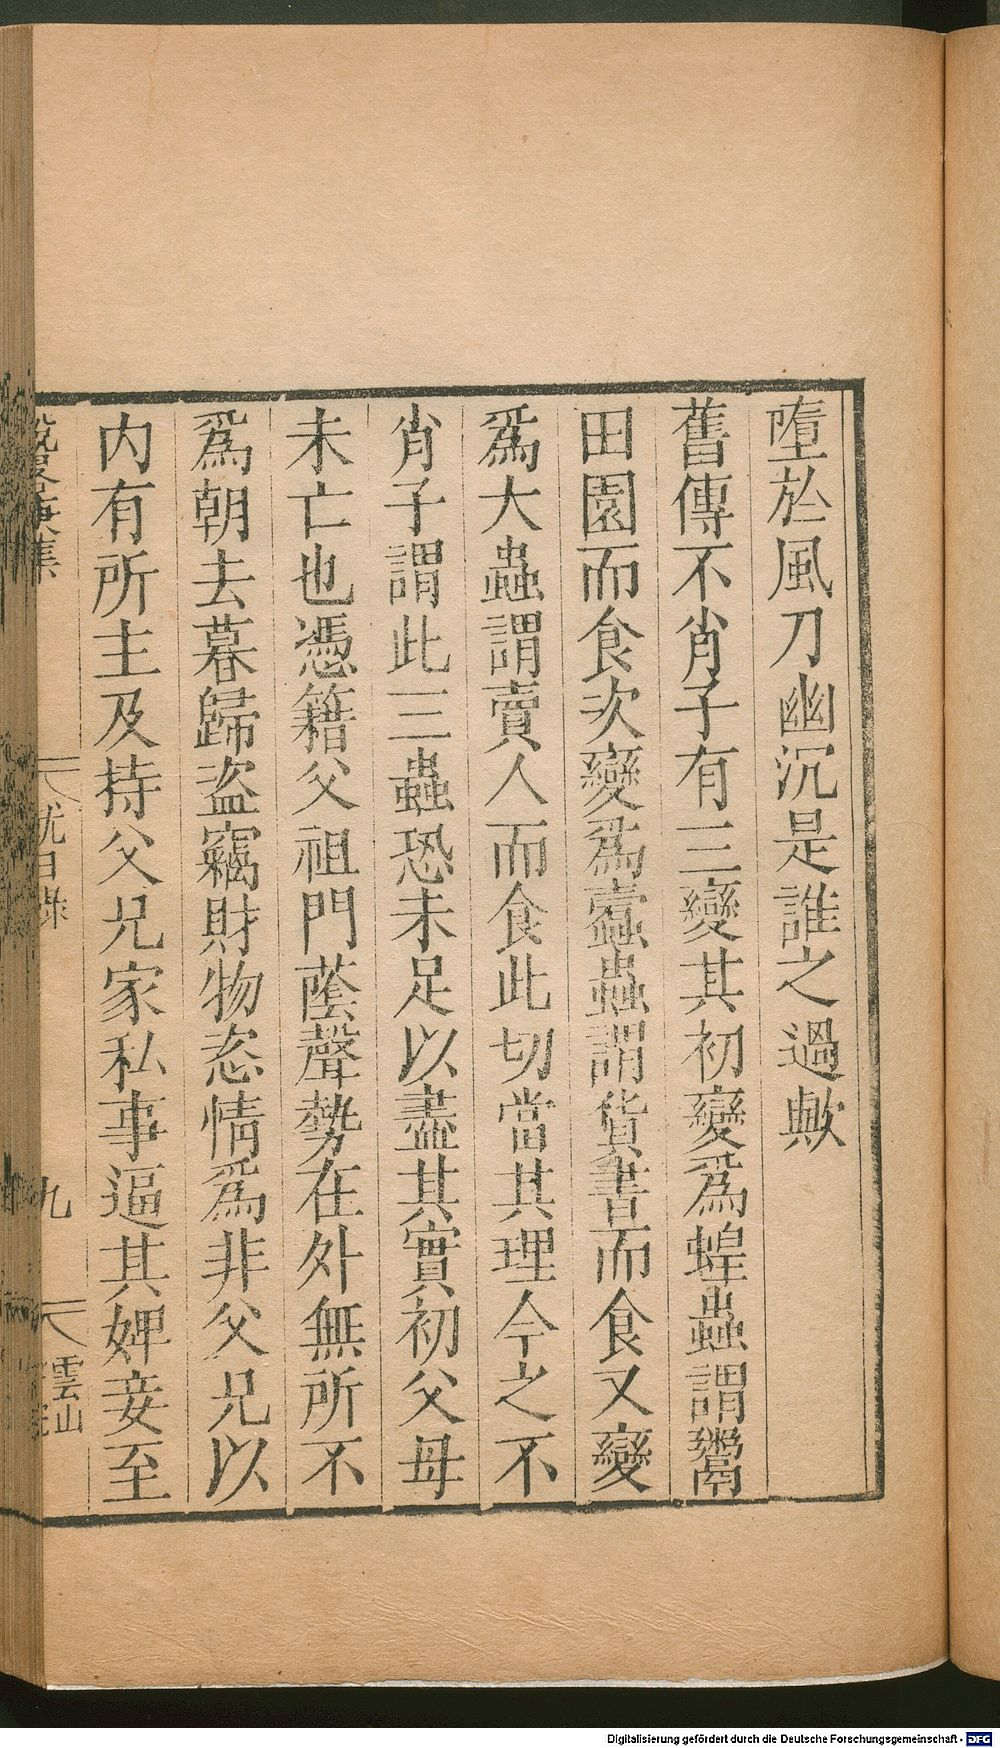 墮於風刀幽沉是誰之過歟
舊傳不肖子有三變其初變爲蝗蟲謂鬻
田園而食次變爲蠹蟲謂貨書而食又變
爲大蟲謂賣人而食此切當其理今之不
肖子謂此三蟲恐未足以盡其實初父母
未亡也憑籍父祖門蔭聲勢在外無所不
爲朝去暮歸盜竊財物恣情爲非父兄以
内有所主及持父兄家私事逼其婢妾至
九
雲山
Digitalisierung gefördert durch die Deutsche Forschungsgemeinschaft - DFG